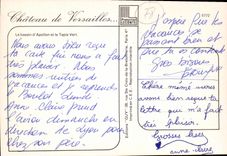 Château de Versailles...
Le bassin d'Apollon et le Tapis Vert.
Nous avons bien reçu
la carte qui nous a fait
très plaisir. Nous
sommes rentrés de
vacances et je reprends
le Boulot Lundi
Anne Claire prend
l'avion dimanche en
direction de Lyon pour
chez son père.
J'espère que les
vacances se
passent bien et
que tu es content
Gros bisous
Chère mémé nous
avons bien reçue ta
lettre qui m'a fait
très plaisir.
Grosses bises
anne-claire